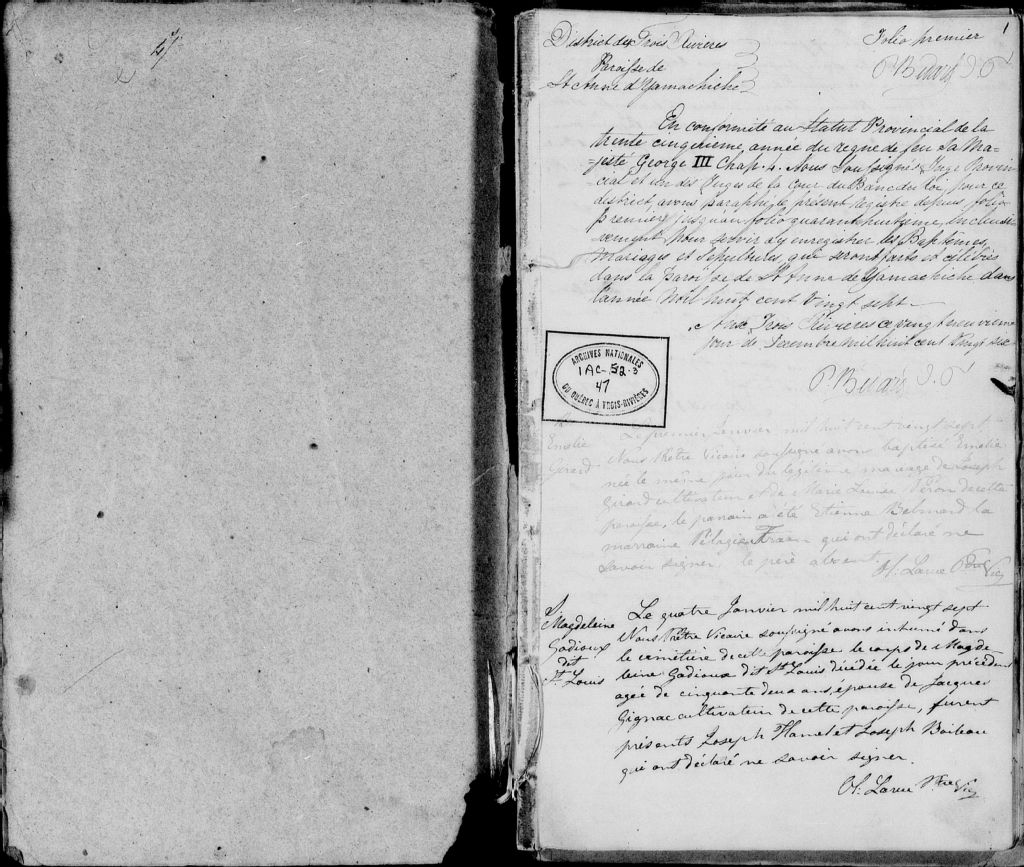 47
1
District des Trois Rivieres
Folio premier
P. Bedard J. P
Paroisse de
St Anne d'Yamachiche
En conformité au Statut Provincial de la
trente cinquieme, année du regne de feu Sa Ma-
-jesté George III Chap. 4. Nous Soussigné Juge Provin-
cial et un des Juges de la Cour du Banc du Roi, pour ce
district, avons paraphé le present registre depuis folio
premier jusqu'au folio quarante huitieme, inclusi-
vement pour servir d'y enregistrer les Baptêmes,
Mariages et Sepultures, qui seront faits et célébrés
dans la Paroisse de St Anne de Yamachiche dans
l'année Mil huit cent Vingt sept.
Aux Trois Rivieres ce vingt neuvieme
jour de Decembre mil huit cent Vingt six
P. Bedard J. P
ARCHIVES NATIONALES
1AC-S2-3
47
DU QUÉBEC À TROIS-RIVIÈRES
Emelie
Girard
Le premier Janvier mil huit cent vingt sept
Nous Prêtre Vicaire soussigné avons baptisé Emelie
née le même jour du légitime mariage de Joseph
Girard cultivateur et de Marie Louise Péron de cette
paroisse, le parrain a été Etienne Belmard la
marraine Pélagie qui ont déclaré ne
savoir signer, le père absent.
Ol. Larue Ptre Vic
S
Magdeleine
Gadioux
dit
St. Louis
Le quatre Janvier mil huit cent vingt sept
Nous Prêtre Vicaire soussigné avons inhumé dans
le cimetière de cette paroisse le corps de Magde
leine Gadioux dit St Louis décédée le jour précédent
agée de cinquante deux ans, épouse de Jacques
Gignac cultivateur de cette paroisse, furent
présents Joseph Hamel et Joseph Boileau
qui ont déclaré ne savoir signer.
Ol. Larue Ptre Vic